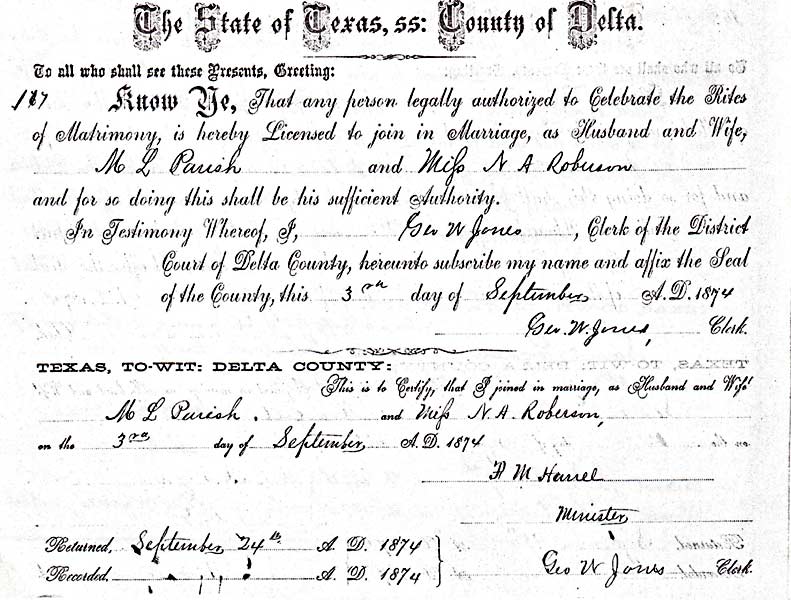 The State of Texas, ss: County of Delta.
To all who shall see these Presents, Greeting:
117 Know Ye, That any person legally authorized to Celebrate the Rites
of Matrimony, is hereby Licensed to join in Marriage, as Husband and Wife,
M L Parish and Miss N A Roberson
and for so doing this shall be his sufficient Authority.
In Testimony Whereof, I, Geo W Jones, Clerk of the District
Court of Delta County, hereunto subscribe my name and affix the Seal
of the County, this 3rd day of September A.D. 1874
Geo. W Jones, Clerk.
TEXAS, TO-WIT: DELTA COUNTY:
This is to Certify, that I joined in marriage, as Husband and Wife
M L Parish. and Miss N. A. Roberson,
on the 3rd day of September, A.D. 1874
M Harrel
Minister
Returned, September 24th A. D. 1874
Recorded, " " A. D. 1874
Geo W Jones Clerk.